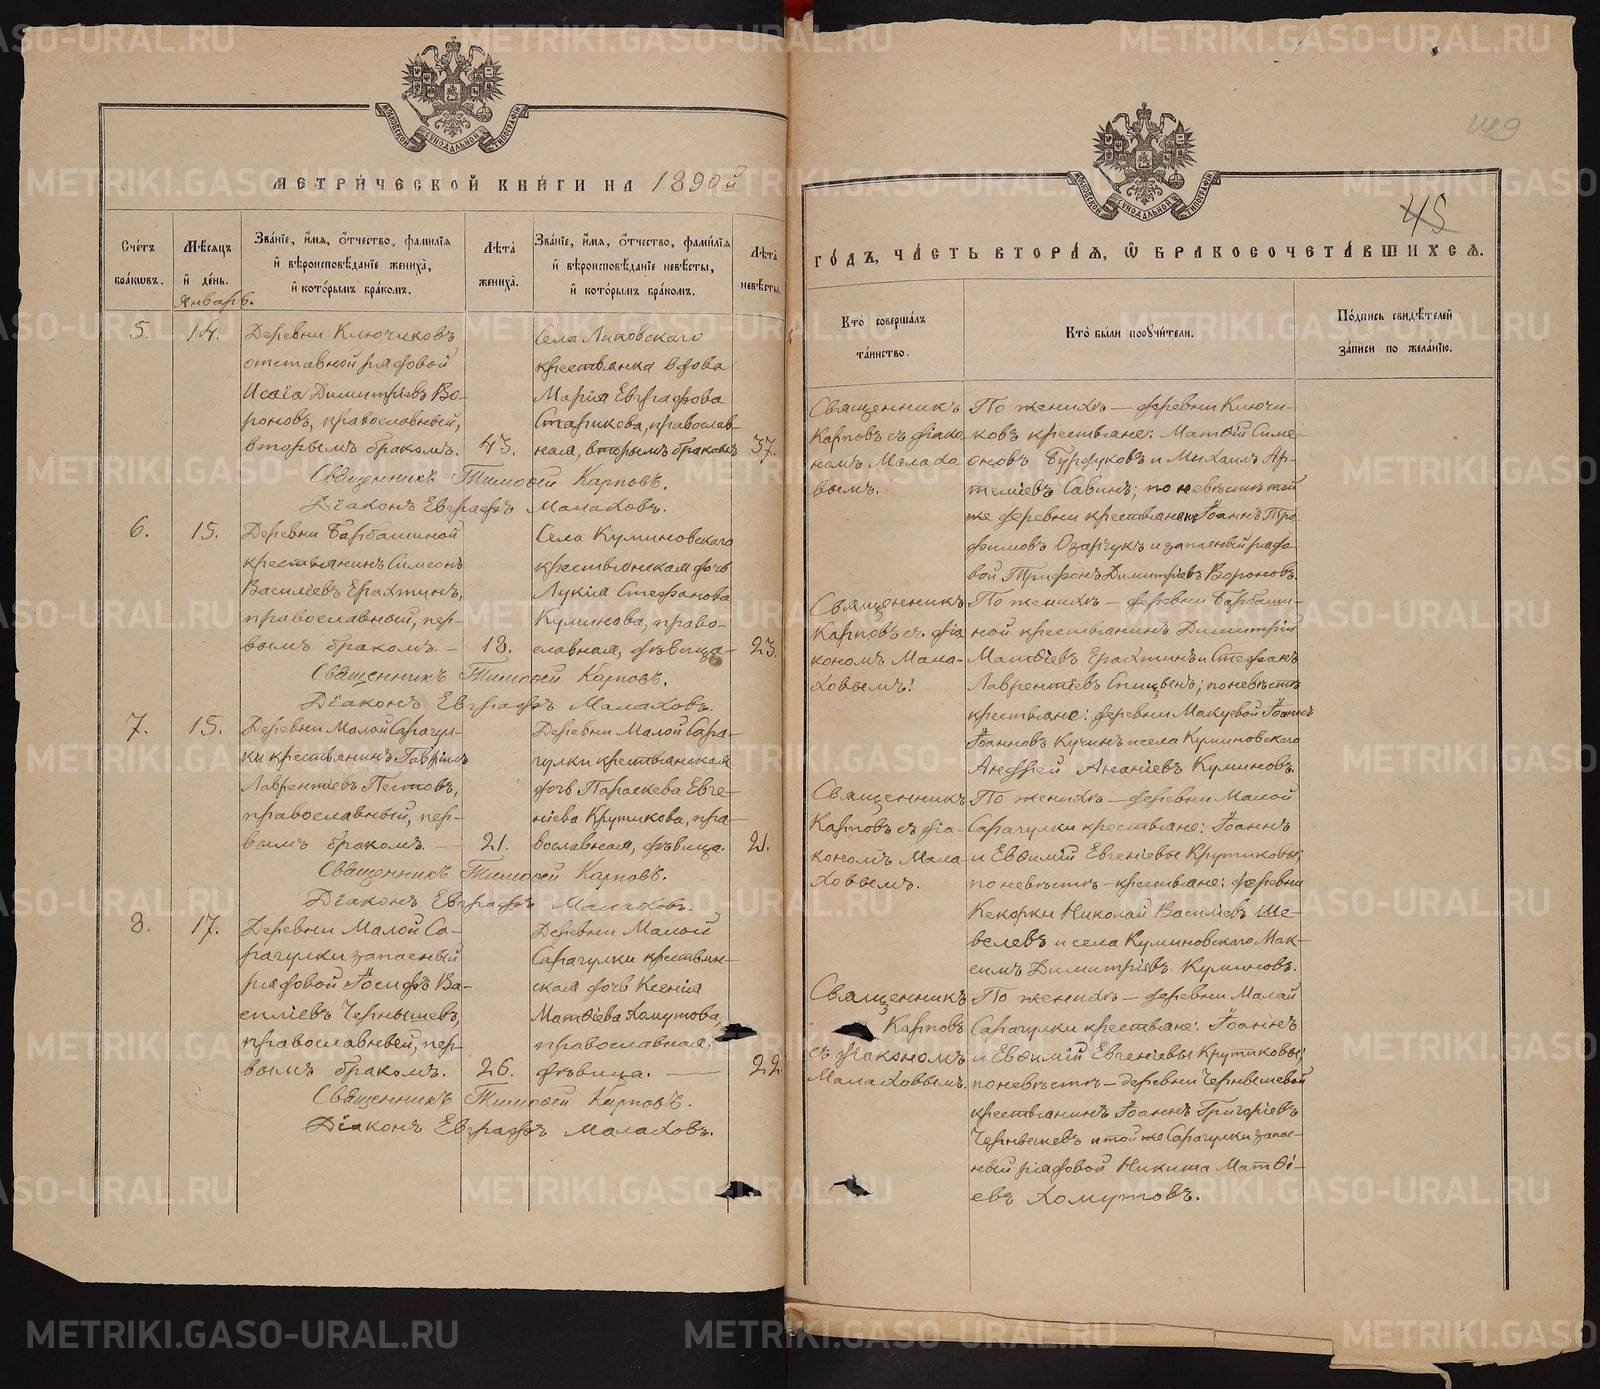 МЕТРИ́ЧЕСКОЙ КНИ́ГИ НА 1890й
Сче́тъ бра́кѡвъ.
Мѣ́сяцъ и҆ де́нь.
Зва́нїе, и҆́мя, ѻ҆́тчество, фами́лїя и҆ вѣроисповѣ́данїе жениха̀, и҆ кото́рымъ бра́комъ.
Лѣта̀ жениха̀.
Зва́нїе, и҆́мя, ѻ҆́тчество, фами́лїя и҆ вѣроисповѣ́данїе невѣ́сты, и҆ кото́рымъ бра́комъ.
Лѣта̀ невѣ́сты.
Январь.
5.
14.
Деревни Ключиковъ
отставной рядовой
Исаiа Димитрiевъ Во-
роновъ, православный,
вторымъ бракомъ.
43.
Села Ликовскаго
крестьянка вдова
Марiя Евграфова
Старикова, православ-
ная, вторымъ бракомъ
37.
Священникъ Тимоѳей Карповъ.
Дiаконъ Евграфъ Малаховъ.
6.
15.
Деревни Барбашиной
крестьянинъ Симеонъ
Василiевъ Ерахтинъ,
православный, пер-
вымъ бракомъ. —
18.
Села Куминовскаго
крестьянская дочь
Лукiя Стефанова
Куминова, право-
славная, дѣвица
23.
Священникъ Тимоѳей Карповъ.
Дiаконъ Евграфъ Малаховъ.
7.
15.
Деревни Малой Сарагул-
ки крестьянинъ Гаврiилъ
Лаврентiевъ Пептовъ,
православный, пер-
вымъ бракомъ. —
21.
Деревни Малой Сара-
гулки крестьянская
дочь Параскева Евге-
нiева Крутикова, пра-
вославная, дѣвица.
21.
Священникъ Тимоѳей Карповъ.
Дiаконъ Евграфъ Малаховъ.
8.
17.
Деревни Малой Са-
рагулки запасный
рядовой Iосифъ Ва-
силiевъ Чернышевъ,
православный, пер-
вымъ бракомъ.
26.
Деревни Малой
Сарагулки крестьян-
ская дочь Ксенiя
Матѳiева Хомутова,
православная,
дѣвица. —
22
Священникъ Тимоѳей Карповъ.
Дiаконъ Евграфъ Малаховъ.
149
45
ГО́ДЪ, ЧА́СТЬ ВТОРА́Я, Ѡ҆ БРАКОСОЧЕТА́ВШИХСЯ.
Кто̀ соверша́лъ та́инство.
Кто̀ бы́ли поручи́тели.
По́дпись свидѣ́телей за́писи по жела́нїю.
Священникъ
Карповъ съ дiако-
номъ Малахо-
вымъ.
По женихѣ — деревни Ключи-
ковъ крестьяне: Матѳiй Симе-
оновъ Бурдуковъ и Михаилъ Ар-
темiевъ Савинъ; по невѣстѣ той
же деревни крестьянинъ Iоаннъ Тро
фимовъ Озарчукъ и запасный рядо-
вой Трифонъ Димитрiевъ Вороновъ.
Священникъ
Карповъ съ дiа
кономъ Мала-
ховымъ.
По женихѣ — деревни Барбаши-
ной крестьянинъ Димитрiй
Матѳiевъ Ерахтинъ и Стефанъ
Лаврентiевъ Спицынъ; по невѣстѣ
крестьяне: деревни Макуевой Iоаннъ
Iоанновъ Кучинъ и села Куминовскаго
Андрей Ананiевъ Куминовъ.
Священникъ
Карповъ съ дiа-
кономъ Мала-
ховымъ.
По женихѣ — деревни Малой
Сарагулки крестьяне: Iоаннъ
и Евѳимiй Евгенiевы Крутиковы;
по невѣстѣ — крестьяне: деревни
Кекорки Николай Василiевъ Ше-
велевъ и села Куминовскаго Мак-
симъ Димитрiевъ Куминовъ.
Священникъ
Карповъ
съ дiакономъ
Малаховымъ.
По женихѣ — деревни Малай
Сарагулки крестьяне: Iоаннъ
и Евѳимiй Евгенiевы Крутиковы;
по невѣстѣ — деревни Чернышевой
крестьянинъ Iоаннъ Григорiевъ
Чернышевъ и той же Сарагулки запас-
ный рядовой Никита Матѳi-
евъ Хомутовъ.